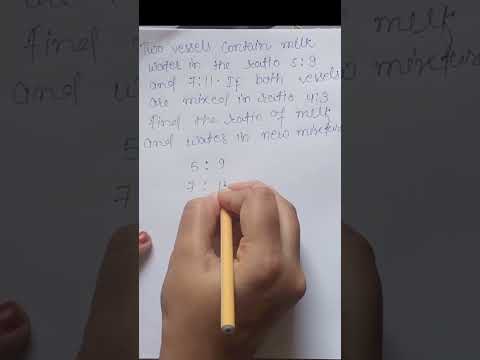 Two vessels contain milk
water in the ratio 5:9
and 7:11. If both vessels
are mixed in ratio 4:3
find the ratio of milk
and water in new mixture
5 : 9
7 : 11